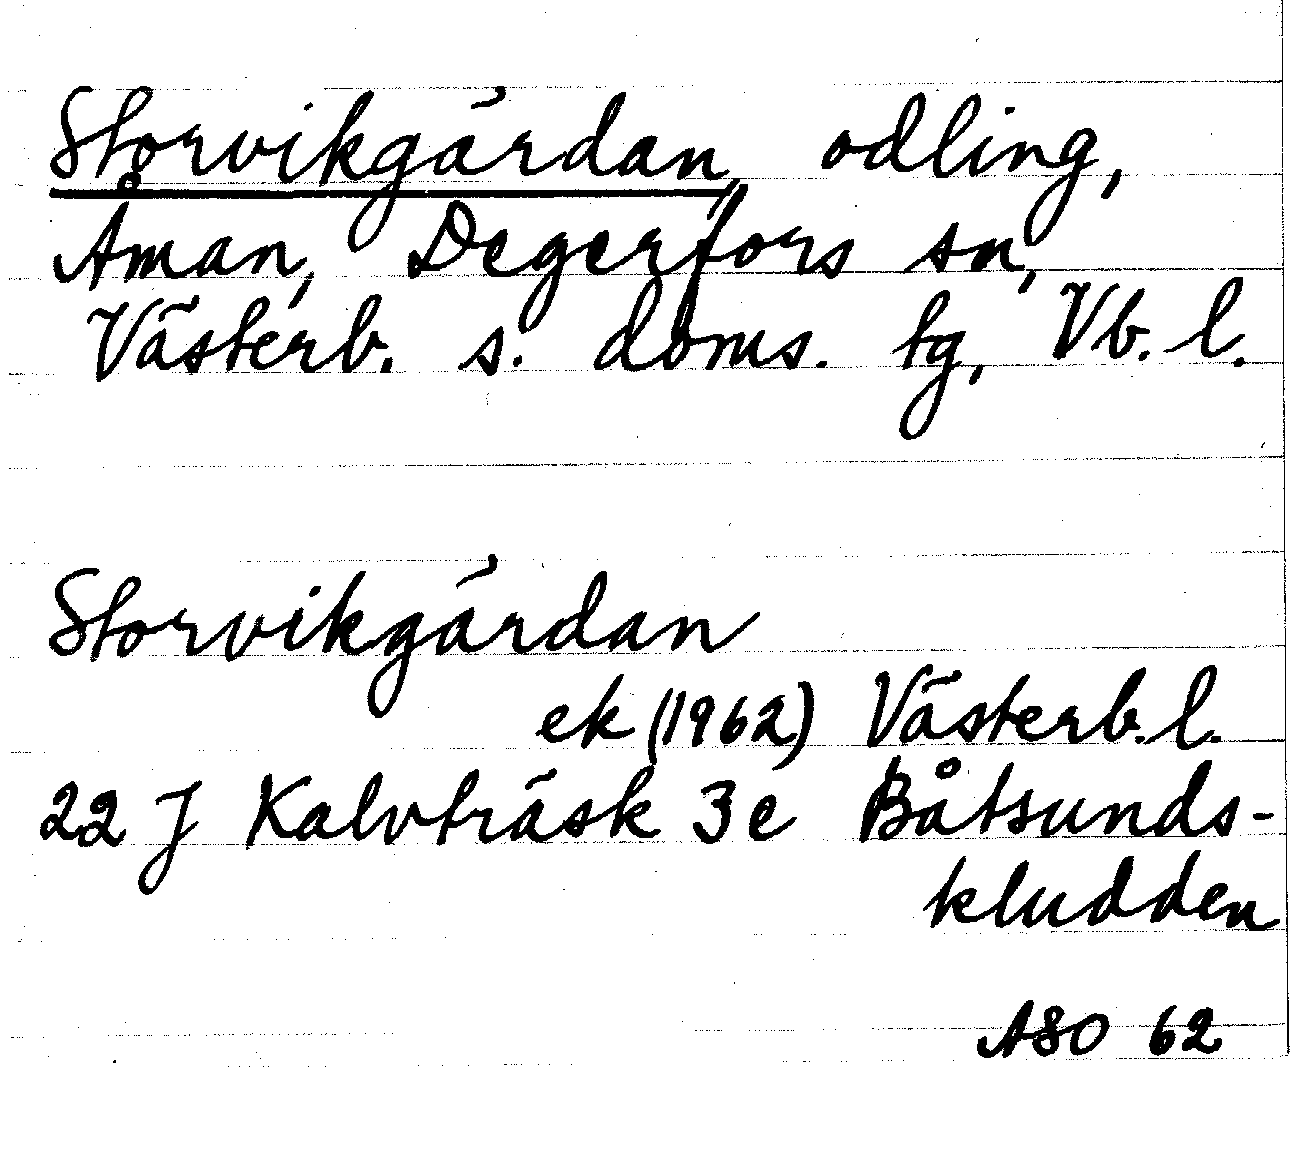 Storvikgärdan, odling,
Åman, Degerfors sn,
Västerb. s. doms. tg, Vb. l.
Storvikgärdan
ek (1962) Västerb. l.
22 J Kalvträsk 3e Båtsunds-
kludden
ASO 62